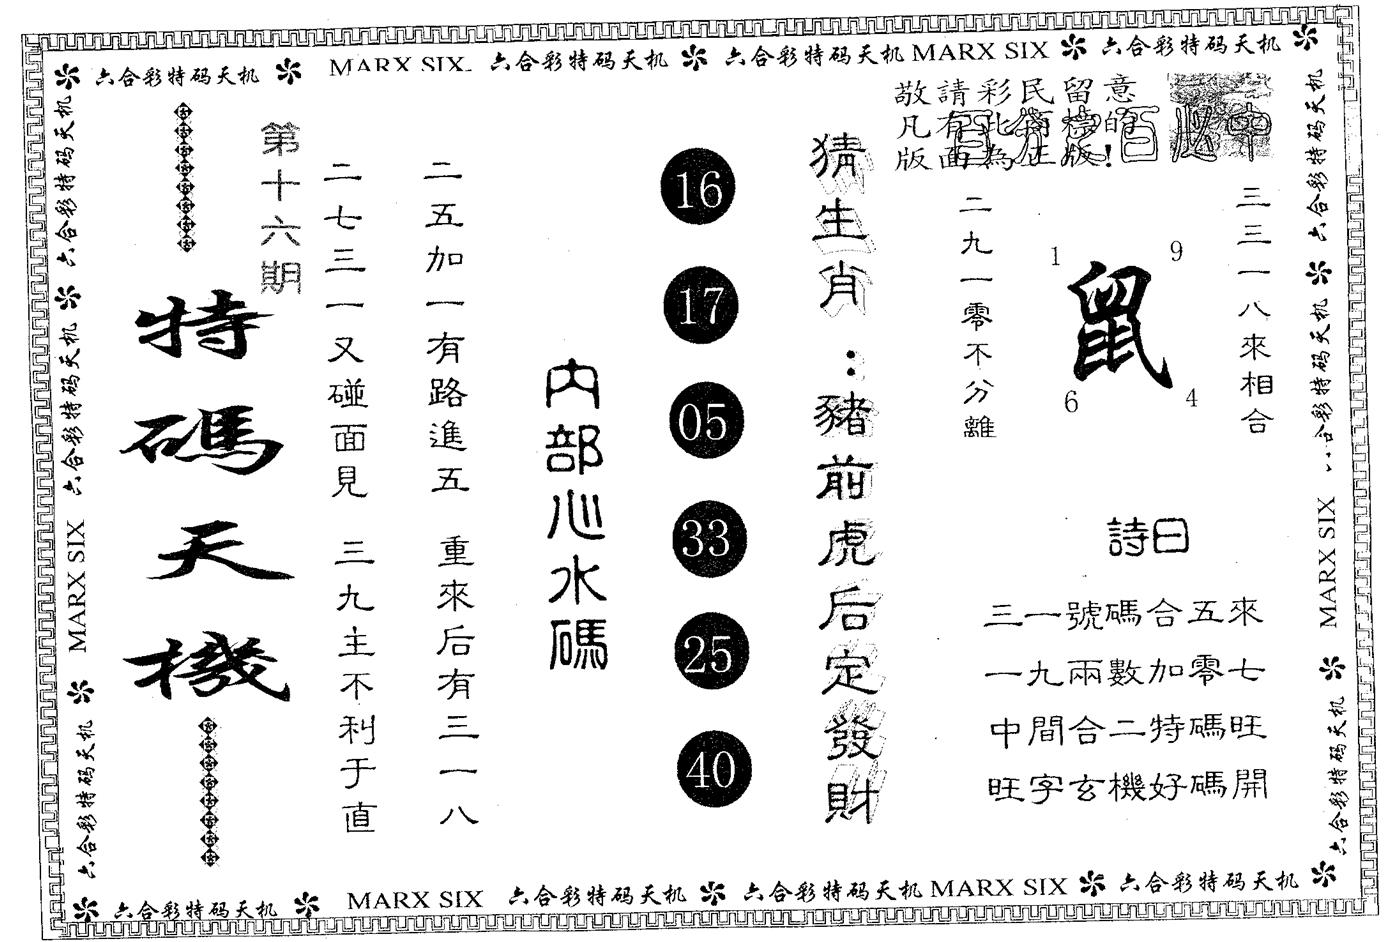 六合彩特码天机 MARX SIX 六合彩特码天机 六合彩特码天机 MARX SIX 六合彩特码天机
敬請彩民留意
凡有此商標的
版面為正版!
百必中
第十六期
特碼天機
二七三一又碰面見 三九主不利于直
二五加一有路進五 重來后有三一八
內部心水碼
16
17
05
33
25
40
猜生肖:豬前虎后定發財
二九一零不分離
三三一八來相合
1
9
鼠
6
4
詩曰
三一號碼合五來
一九兩數加零七
中間合二特碼旺
旺字玄機好碼開
六合彩特码天机 六合彩特码天机 MARX SIX 六合彩特码天机
六合彩特码天机 六合彩特码天机 MARX SIX 六合彩特码天机
六合彩特码天机 MARX SIX 六合彩特码天机 六合彩特码天机 MARX SIX 六合彩特码天机